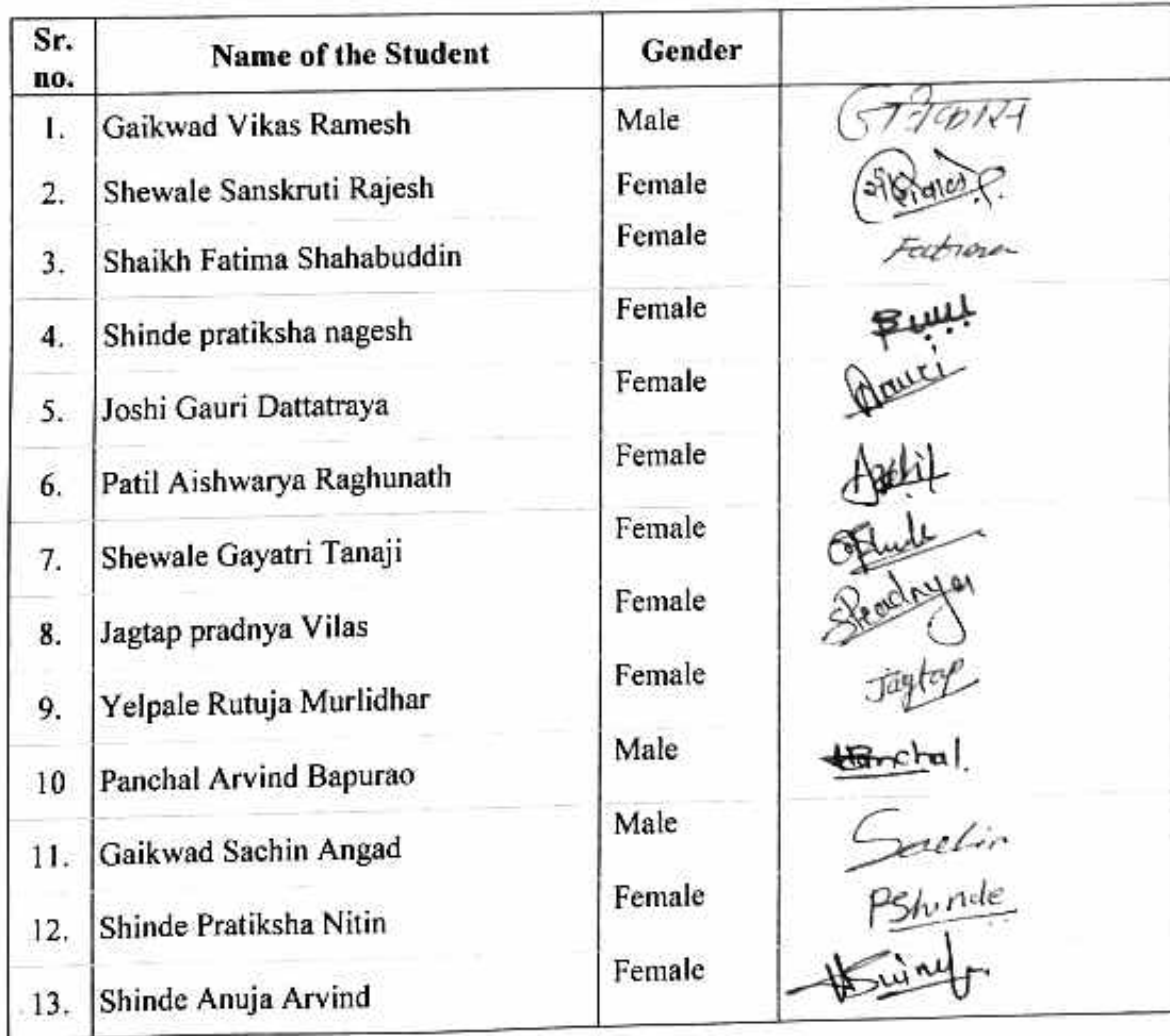 Sr. no. Name of the Student Gender
1. Gaikwad Vikas Ramesh Male
2. Shewale Sanskruti Rajesh Female
3. Shaikh Fatima Shahabuddin Female Fatima
4. Shinde pratiksha nagesh Female
5. Joshi Gauri Dattatraya Female Gauri
6. Patil Aishwarya Raghunath Female
7. Shewale Gayatri Tanaji Female
8. Jagtap pradnya Vilas Female Pradnya
9. Yelpale Rutuja Murlidhar Female Jagtap
10 Panchal Arvind Bapurao Male Panchal.
11. Gaikwad Sachin Angad Male Sachin
12. Shinde Pratiksha Nitin Female PShinde
13. Shinde Anuja Arvind Female